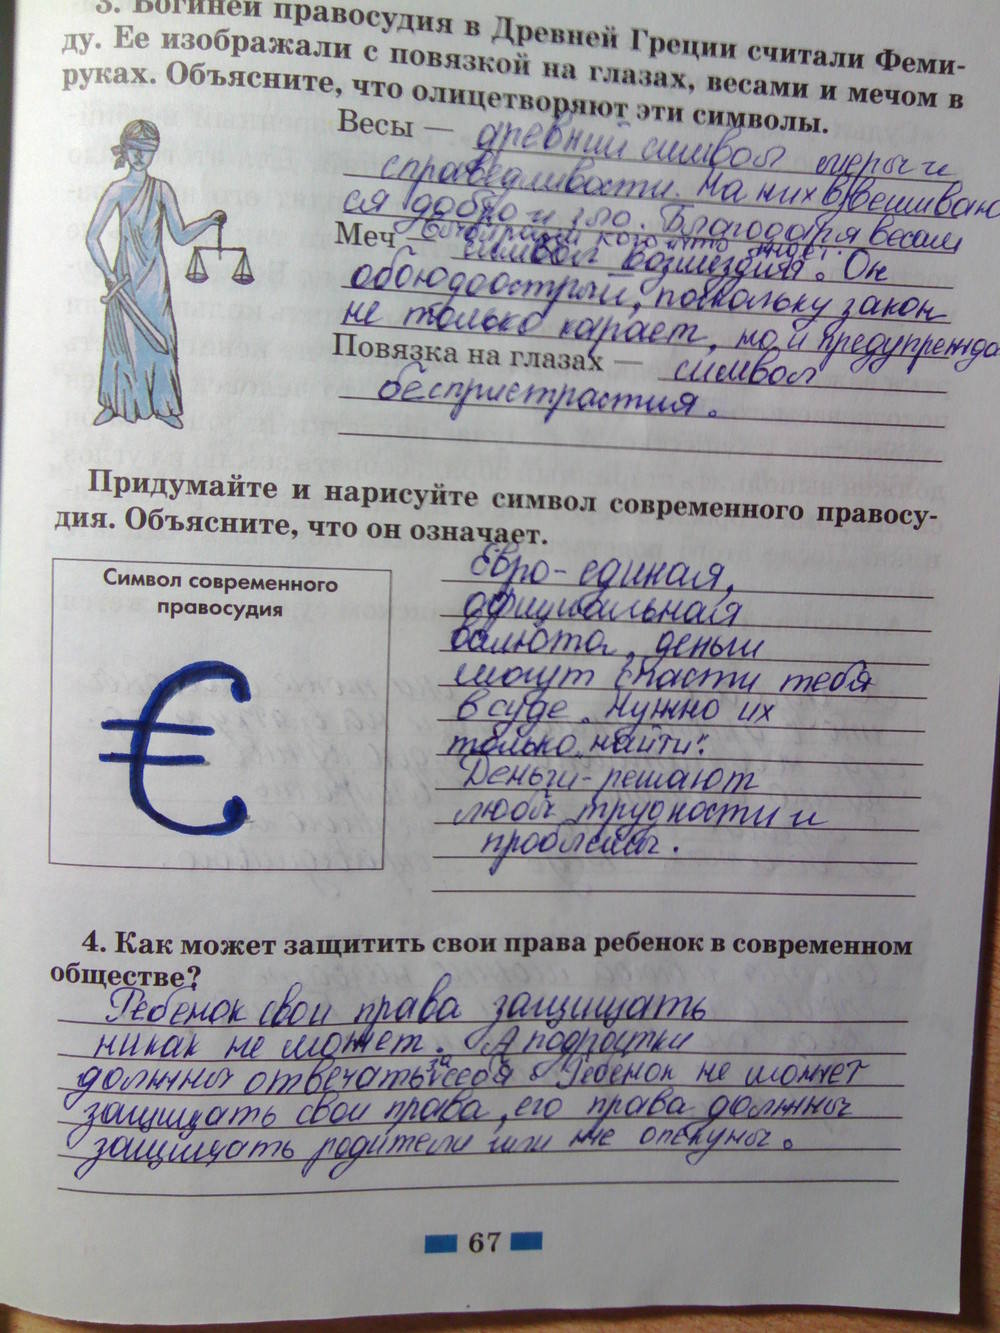 3. Богиней правосудия в Древней Греции считали Феми-
ду. Ее изображали с повязкой на глазах, весами и мечом в
руках. Объясните, что олицетворяют эти символы.
Весы — древний символ меры и
справедливости. На них взвешиваю
ся добро и зло. Благодаря весам
выбирали кого что ждёт.
Меч — символ возмездия. Он
обоюдоострый, поскольку закон
не только карает, но и предупрежда
Повязка на глазах — символ
беспристрастия.
Придумайте и нарисуйте символ современного правосу-
дия. Объясните, что он означает.
Символ современного
правосудия
€
Евро - единая,
официальная
валюта, деньги
могут спасти тебя
в суде, нужно их
только найти!
Деньги - решают
любы трудности и
проблемы.
4. Как может защитить свои права ребенок в современном
обществе?
Ребенок свои права защищать
никак не может. А подростки
должны отвечать за себя. Ребенок не может
защищать свои права, его права должны
защищать родители или же опекуны.
67